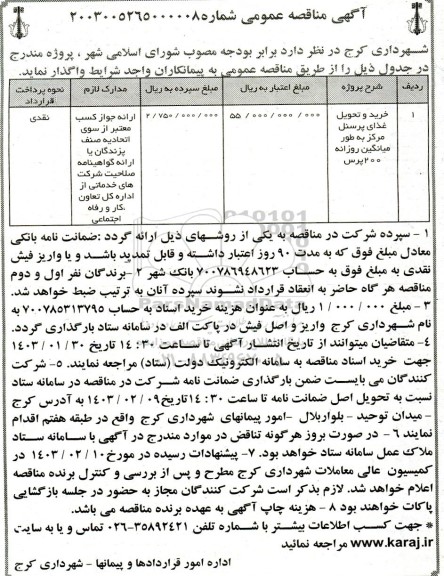 آگهی مناقصه عمومی شماره ۲۰۰۳۰۰۵۲۶۵۰۰۰۰۰۸
شهرداری کرج در نظر دارد برابر بودجه مصوب شورای اسلامی شهر ، پروژه مندرج
در جدول ذیل را از طریق مناقصه عمومی به پیمانکاران واجد شرایط واگذار نماید.
ردیف شرح پروژه مبلغ اعتبار به ریال مبلغ سپرده به ریال مدارک لازم نحوه پرداخت قرارداد
۱ خرید و تحویل غذای پرسنل مرکز به طور میانگین روزانه ۲۰۰پرس ۵۵/۰۰۰/۰۰۰/۰۰۰ ۲/۷۵۰/۰۰۰/۰۰۰ ارائه جواز کسب معتبر از سوی اتحادیه صنف پزندگان یا ارائه گواهینامه صلاحیت شرکت های خدماتی از اداره کل تعاون ،کار و رفاه اجتماعی نقدی
۱ - سپرده شرکت در مناقصه به یکی از روشهای ذیل ارائه گردد :ضمانت نامه بانکی
معادل مبلغ فوق که به مدت ۹۰ روز اعتبار داشته و قابل تمدید باشد و یا واریز فیش
نقدی به مبلغ فوق به حساب ۷۰۰۷۸۶۹۴۸۶۲۳ بانک شهر ۲ -برندگان نفر اول و دوم
مناقصه هر گاه حاضر به انعقاد قرارداد نشوند سپرده آنان به ترتیب ضبط خواهد شد.
۳ - مبلغ ۱/۰۰۰/۰۰۰ ریال به عنوان هزینه خرید اسناد به حساب ۷۰۰۷۸۵۳۱۳۷۹۵ به
نام شهرداری کرج واریز و اصل فیش در پاکت الف در سامانه ستاد بارگذاری گردد.
۴- متقاضیان میتوانند از تاریخ انتشار آگهی تا ساعت ۱۴:۳۰ تاریخ ۱۴۰۳/۰۱/۳۰
جهت خرید اسناد مناقصه به سامانه الکترونیک دولت (ستاد) مراجعه نمایند. ۵- شرکت
کنندگان می بایست ضمن بارگذاری ضمانت نامه شرکت در مناقصه در سامانه ستاد
نسبت به تحویل اصل ضمانت نامه تا ساعت ۱۴:۳۰ تاریخ ۱۴۰۳/۰۲/۰۹ به آدرس کرج
- میدان توحید - بلواربلال -امور پیمانهای شهرداری کرج واقع در طبقه هفتم اقدام
نمایند ۶- در صورت بروز هرگونه تناقض در موارد مندرج در آگهی با سامانه ستاد
ملاک عمل سامانه ستاد خواهد بود. ۷- پیشنهادات رسیده در مورخ ۱۴۰۳/۰۲/۱۰ در
کمیسیون عالی معاملات شهرداری کرج مطرح و پس از بررسی و کنترل برنده مناقصه
اعلام خواهد شد. لازم بذکر است شرکت کنندگان مجاز به حضور در جلسه بازگشایی
پاکات خواهند بود ۸ - هزینه چاپ آگهی به عهده برنده مناقصه می باشد.
* جهت کسب اطلاعات بیشتر با شماره تلفن ۳۵۸۹۲۴۲۱-۰۲۶ تماس و یا به سایت
www.karaj.ir مراجعه نمائید
اداره امور قراردادها و پیمانها - شهرداری کرج